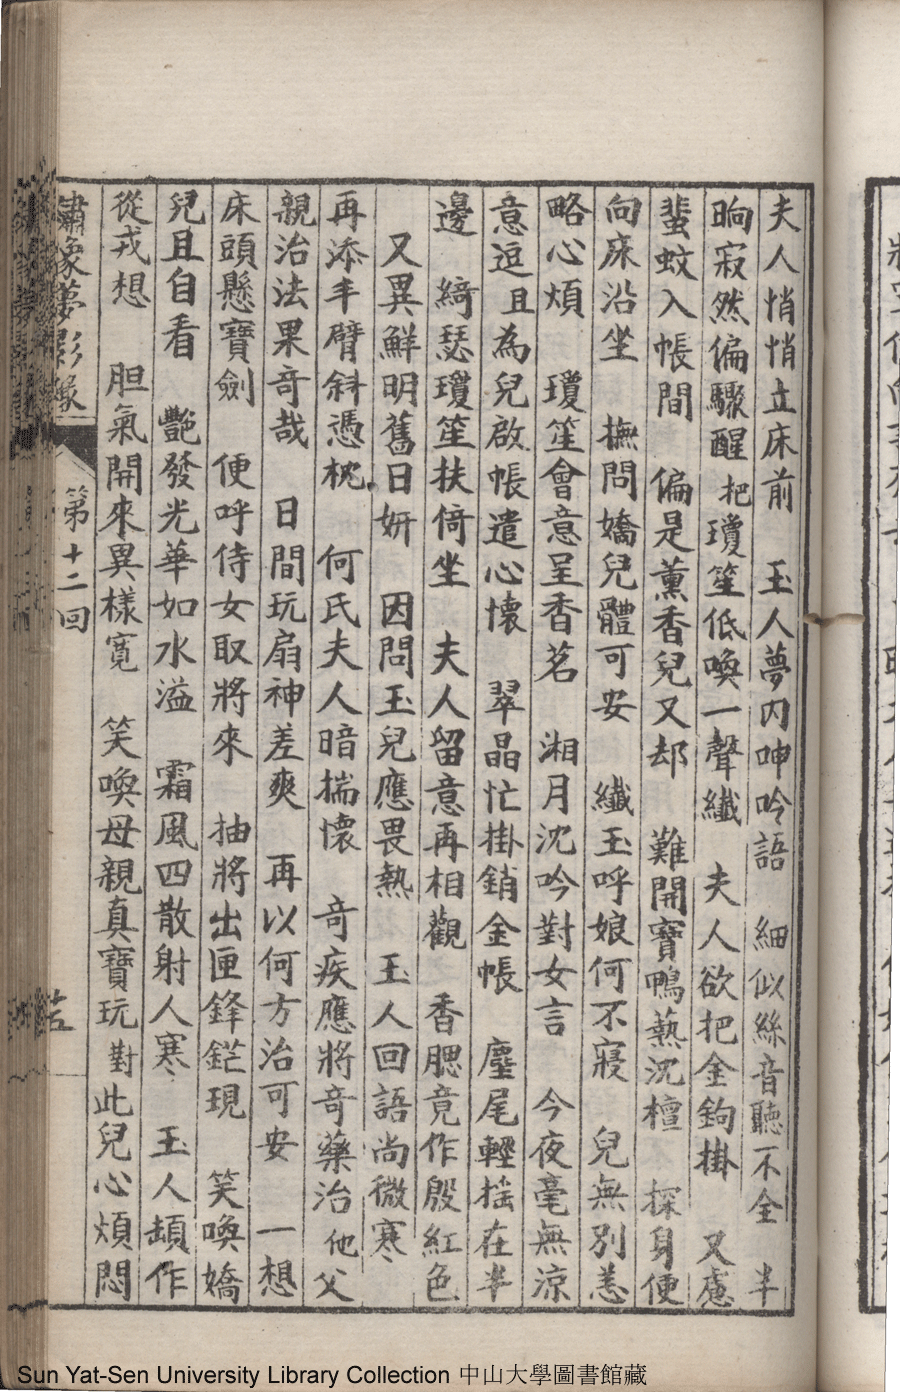 夫人悄悄立床前　玉人夢內呻吟語　細似絲音聽不全　半
晌寂然偏驟醒　把瓊笙低喚一聲纖　夫人欲把金鉤掛　又慮
蜚蚊入帳間　偏是薰香兒又却　難開寶鴨熱沉檀　探身便
向床沿坐　撫問嬌兒體可安　纖玉呼娘何不寢　兒無別恙
略心煩　瓊笙會意呈香茗　湘月沈吟對女言　今夜毫無涼
意逗　且為兒啟帳遣心懷　翠晶忙掛銷金帳　塵尾輕搖在半
邊　綺瑟瓊笙扶倚坐　夫人留意再相觀　香腮竟作殷紅色
又異鮮明舊日妍　因問玉兒應畏熱　玉人回語尚微寒
再添半臂斜憑枕　何氏夫人暗揣懷　奇疾應將奇藥治　他父
親治法果奇哉　日間玩扇神差爽　再以何方治可安　一想
床頭懸寶劍　便呼侍女取將來　抽將出匣鋒鋩現　笑喚嬌
兒且自看　艷發光華如水溢　霜風四散射人寒　玉人頡作
從戎想　胆氣開來異樣寬　笑喚母親真寶玩　對此兒心煩悶
繡像夢影緣　第十二回
Sun Yat-Sen University Library Collection 中山大學圖書館藏